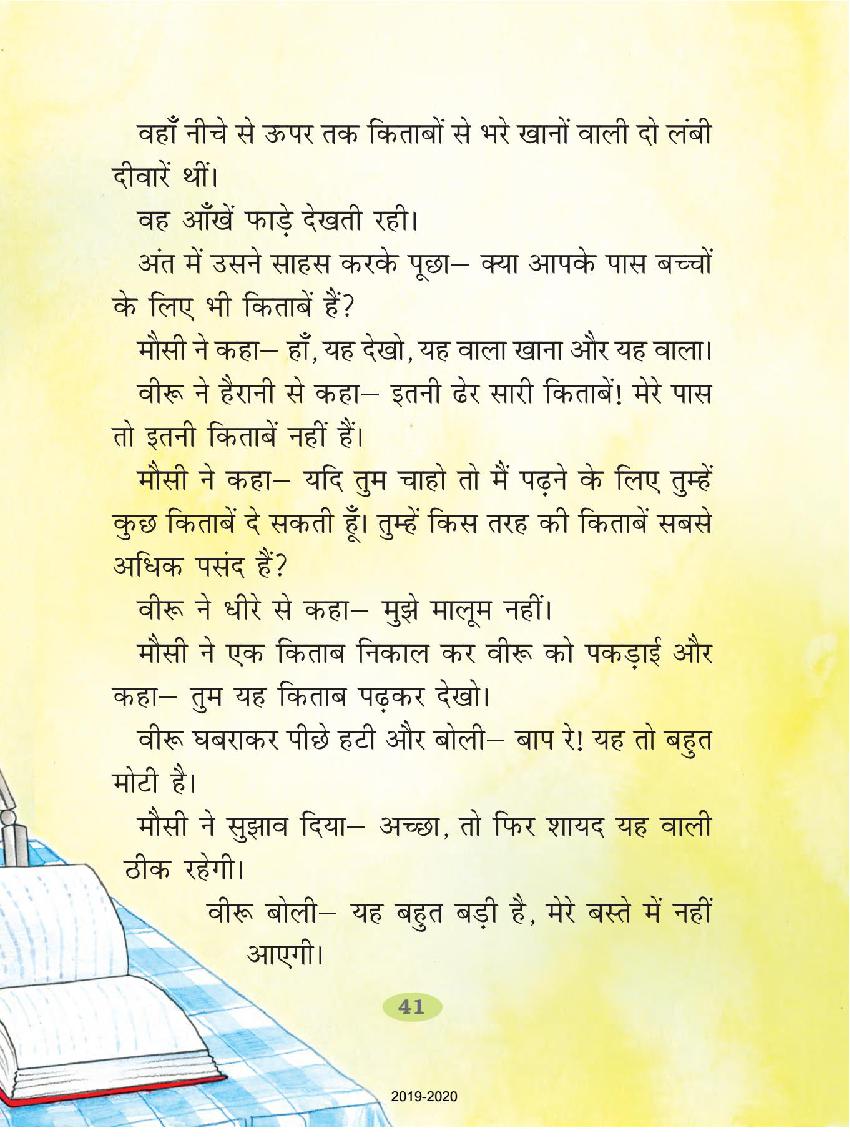 वहाँ नीचे से ऊपर तक किताबों से भरे खानों वाली दो लंबी
दीवारें थीं।
वह आँखें फाड़े देखती रही।
अंत में उसने साहस करके पूछा– क्या आपके पास बच्चों
के लिए भी किताबें हैं?
मौसी ने कहा– हाँ, यह देखो, यह वाला खाना और यह वाला।
वीरू ने हैरानी से कहा– इतनी ढेर सारी किताबें! मेरे पास
तो इतनी किताबें नहीं हैं।
मौसी ने कहा– यदि तुम चाहो तो मैं पढ़ने के लिए तुम्हें
कुछ किताबें दे सकती हूँ। तुम्हें किस तरह की किताबें सबसे
अधिक पसंद हैं?
वीरू ने धीरे से कहा– मुझे मालूम नहीं।
मौसी ने एक किताब निकाल कर वीरू को पकड़ाई और
कहा– तुम यह किताब पढ़कर देखो।
वीरू घबराकर पीछे हटी और बोली– बाप रे! यह तो बहुत
मोटी है।
मौसी ने सुझाव दिया– अच्छा, तो फिर शायद यह वाली
ठीक रहेगी।
वीरू बोली– यह बहुत बड़ी है, मेरे बस्ते में नहीं
आएगी।
41
2019-2020